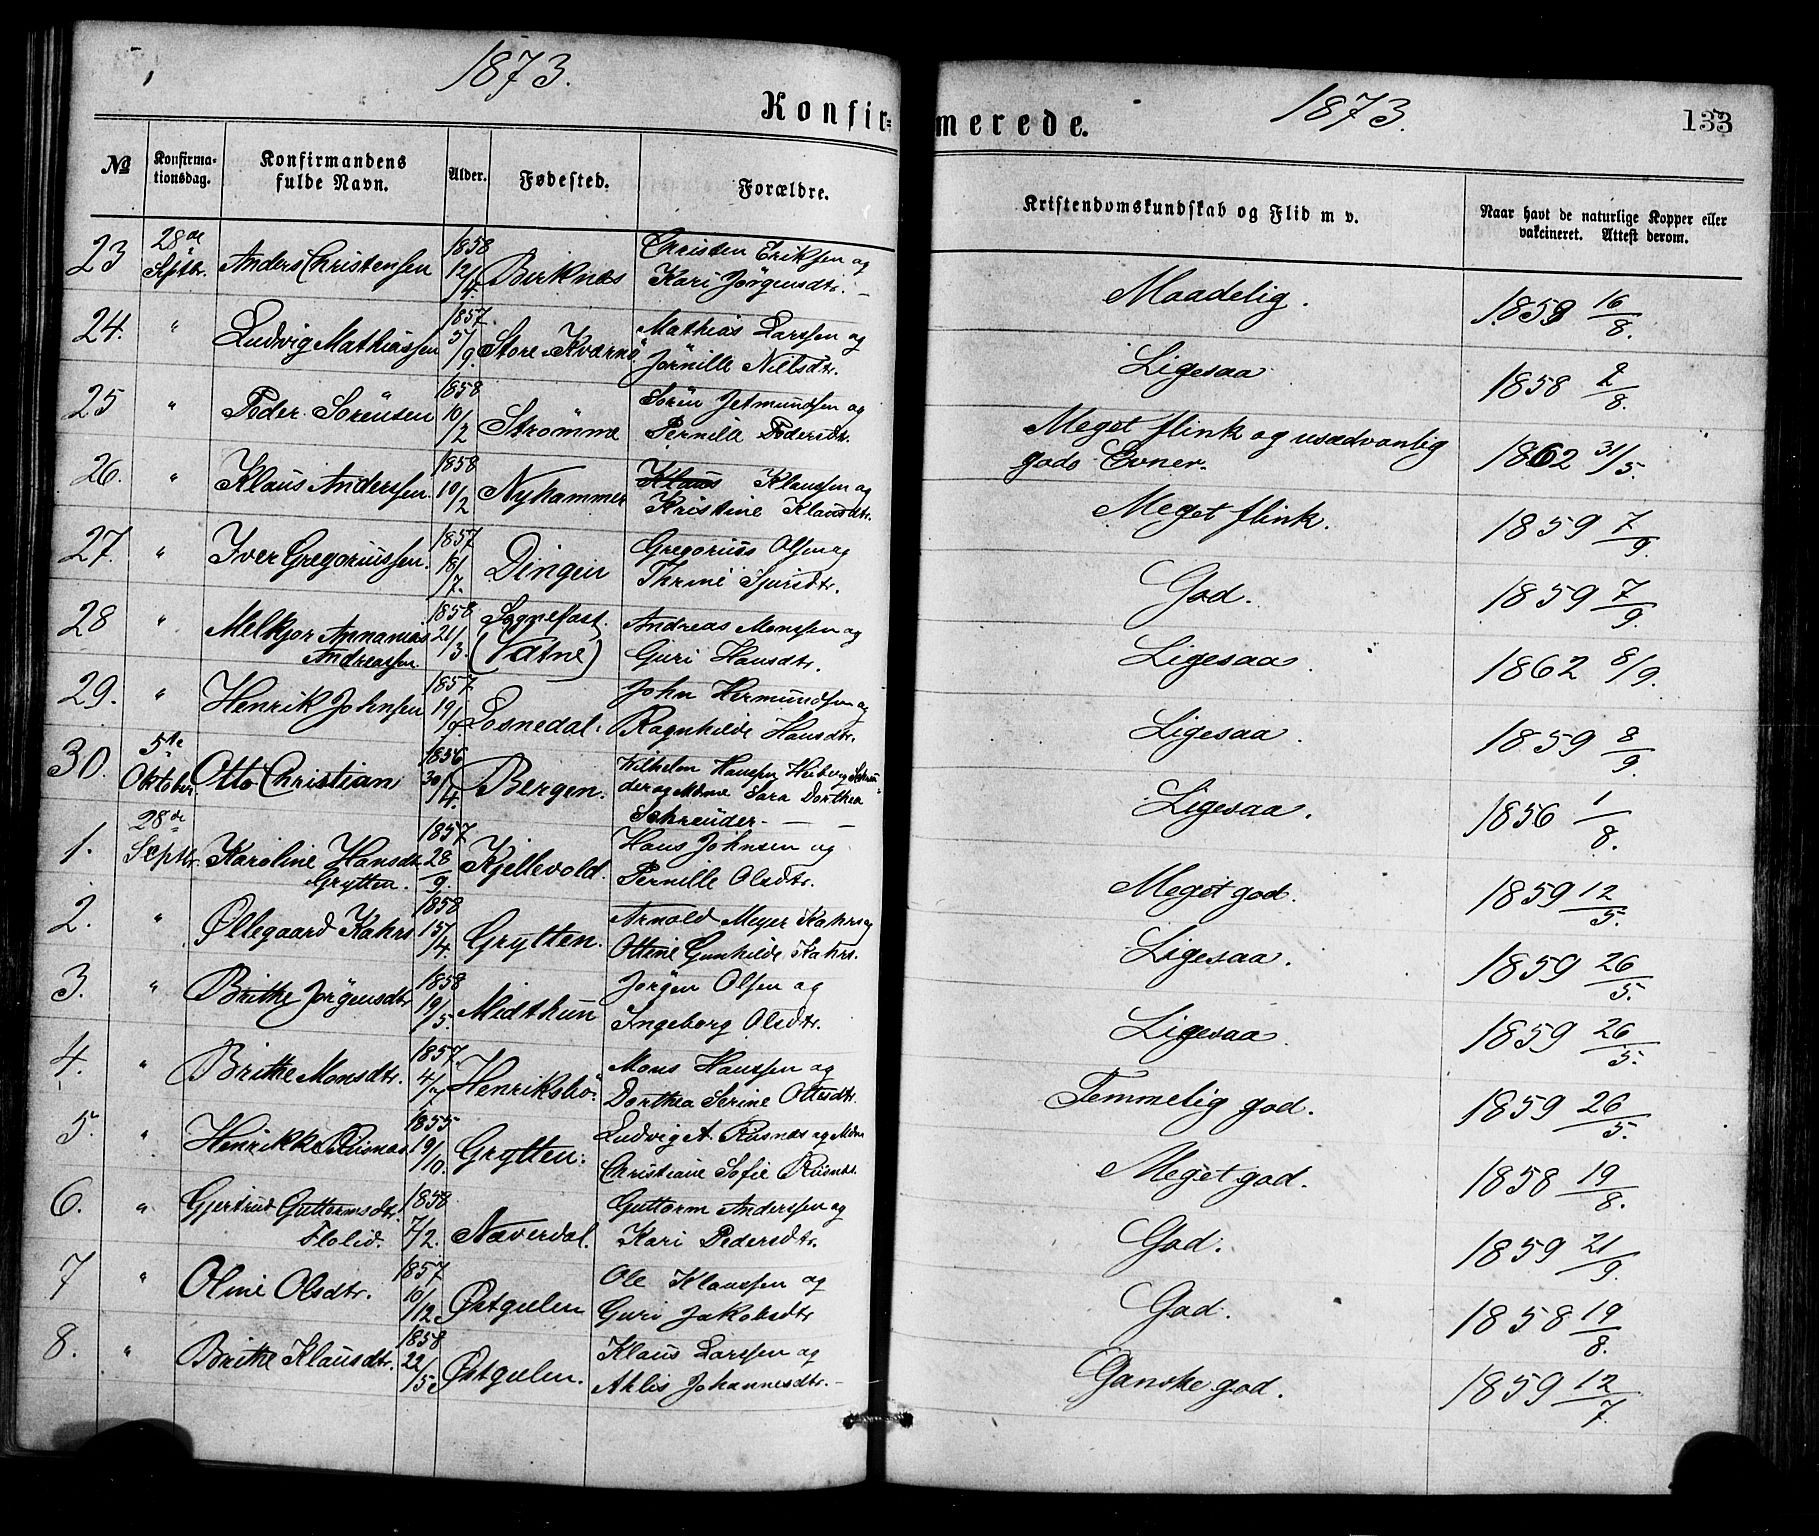 1873.
1873.
133
Konfir=
merede.
№
Konfirma-
tionsdag.
Konfirmandens
fulde Navn.
Alder.
Fødested.
Forældre.
Kristendomskundskab og Flid m v.
Naar havt de naturlige Kopper eller
vakcineret. Attest derom.
23 28de Septbr. Anders Christensen 1858 12/4. Birknæs Christen Eriksen og
Kari Jörgensdtr. – Maadelig. 1859 16/8.
24. " Ludvig Mathiassen 1857. 5/9. Store-Kværnö Mathias Larssen og
Jörnille Nilsdtr. Ligesaa 1858 2/8.
25 " Peder Sörensen 1858 10/2 Strömme Sören Jetmundsen og
Pernille Pedersdtr. Meget flink og usædvanlig
gode Evner. 1862 31/5.
26. " Klaus Anderssen. 1858 10/2 Nyhammer Klaus Klaussen og
Kristine Klausdtr. Meget flink. 1859 7/9.
27. " Iver Gregoriussen. 1857 18/7. Dingen Gregorius Olsen og
Thrine Sjursdtr. God. 1859 7/9.
28 " Melkjor Annanias
Andreassen. 1858 21/3. Sognefast.
(Vatne) Andreas Monssen og
Guri Hansdtr. Ligesaa. 1862 8/9.
29. " Henrik Johnsen 1857 19/7 Losnedal. John Hermundsen og
Ragnhilde Hansdtr. Ligesaa. 1859 8/9.
30. 5te Oktober. Otto Christian 1856 30/4. Bergen. Wilhelm Hanssen Heiberg Schreu-
der og Mdme Sara Dorthea
Schreuder. – – Ligesaa. 1856 1/8.
1. 28de Septbr. Karoline Hansdtr.
Grytten. 1857. 28/9. Kjellevold. Hans Johnsen og
Pernille Olsdtr. Meget god. 1859 12/5.
2. " Øllegaard Kahrs 1858 15/4. Grytten. Arnold Meyer Kahrs og
Ottine Gunhilde Kahrs. Ligesaa. 1859 26/5.
3. " Brithe Jörgensdtr. 1858 19/5. Midthun Jörgen Olsen og
Ingeborg Olsdtr. Ligesaa. 1859 26/5.
4. " Brithe Monsdtr. 1857. 4/7 Henriksbö. Mons Hanssen og
Dorthea Serine Ottesdtr. Temmelig god. 1859 26/5.
5. " Henrikke Riisnæs. 1855 19/10. Grytten. Ludvig A. Riisnæs og Mdm
Christiane Sofie Riisnæs. Meget god. 1858 19/8.
6. " Gjertrud Guttormsdtr.
Flolid. 1858 7/2. Naverdal. Guttorm Anderssen og
Kari Pedersdtr. God. 1859 21/9.
7 " Oline Olsdtr. 1857 10/12 Østgulen Ole Klaussen og
Guri Jakobsdtr God. 1858 19/8.
8. " Brithe Klausdtr. 1858 22/5 Østgulen. Klaus Larssen og
Ahlis Johannesdtr. – Ganske god. 1859 12/7.